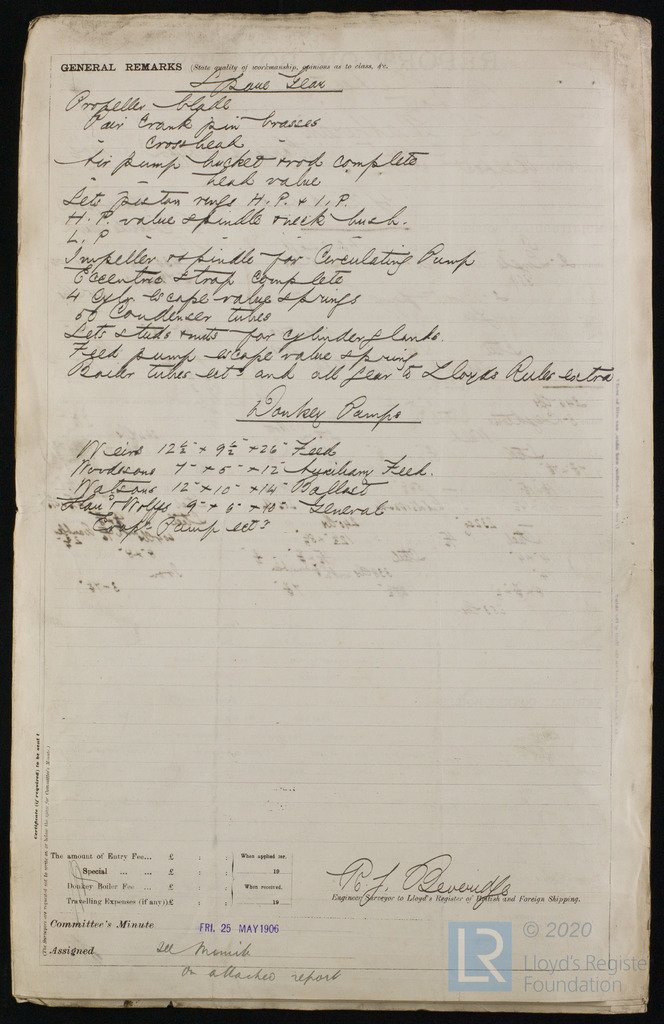 GENERAL REMARKS (State quality of workmanship, opinions as to class, &c.
Spare Gear
Propeller blade
Pair Crank pin brasses
" Cross head "
Air pump bucket & rod complete
" " head valve
Sets piston rings H.P. & I.P.
H.P. valve spindle & neck bush.
L.P. " " " "
Impeller & spindle for Circulating Pump
Eccentric strap complete
4 Cylr escape valve springs
50 Condenser tubes
Sets studs & nuts for cylinder glands.
Feed pump escape valve spring
Boiler tubes ect and all gear to Lloyds Rules extra
Donkey Pumps
Weirs 12½" + 9½" + 26" Feed
Woodesons 7" + 5" + 12" Auxiliary Feed.
Watsons 12" + 10" + 14" Ballast
9" + 6" + 10" General
Evapr Pump ect
Certificate (if required) to be sent t
The amount of Entry Fee... £ : :
When applied for,
Special ... ... £ : :
19
Donkey Boiler Fee ... £ : :
When received,
Travelling Expenses (if any)) £ : :
19
R. J. Beveridge
Engineer Surveyor to Lloyd's Register of British and Foreign Shipping.
Committee's Minute
FRI. 25 MAY 1906
Assigned
See Minute
on attached report
LR
© 2020
Lloyd's Registe
Foundation